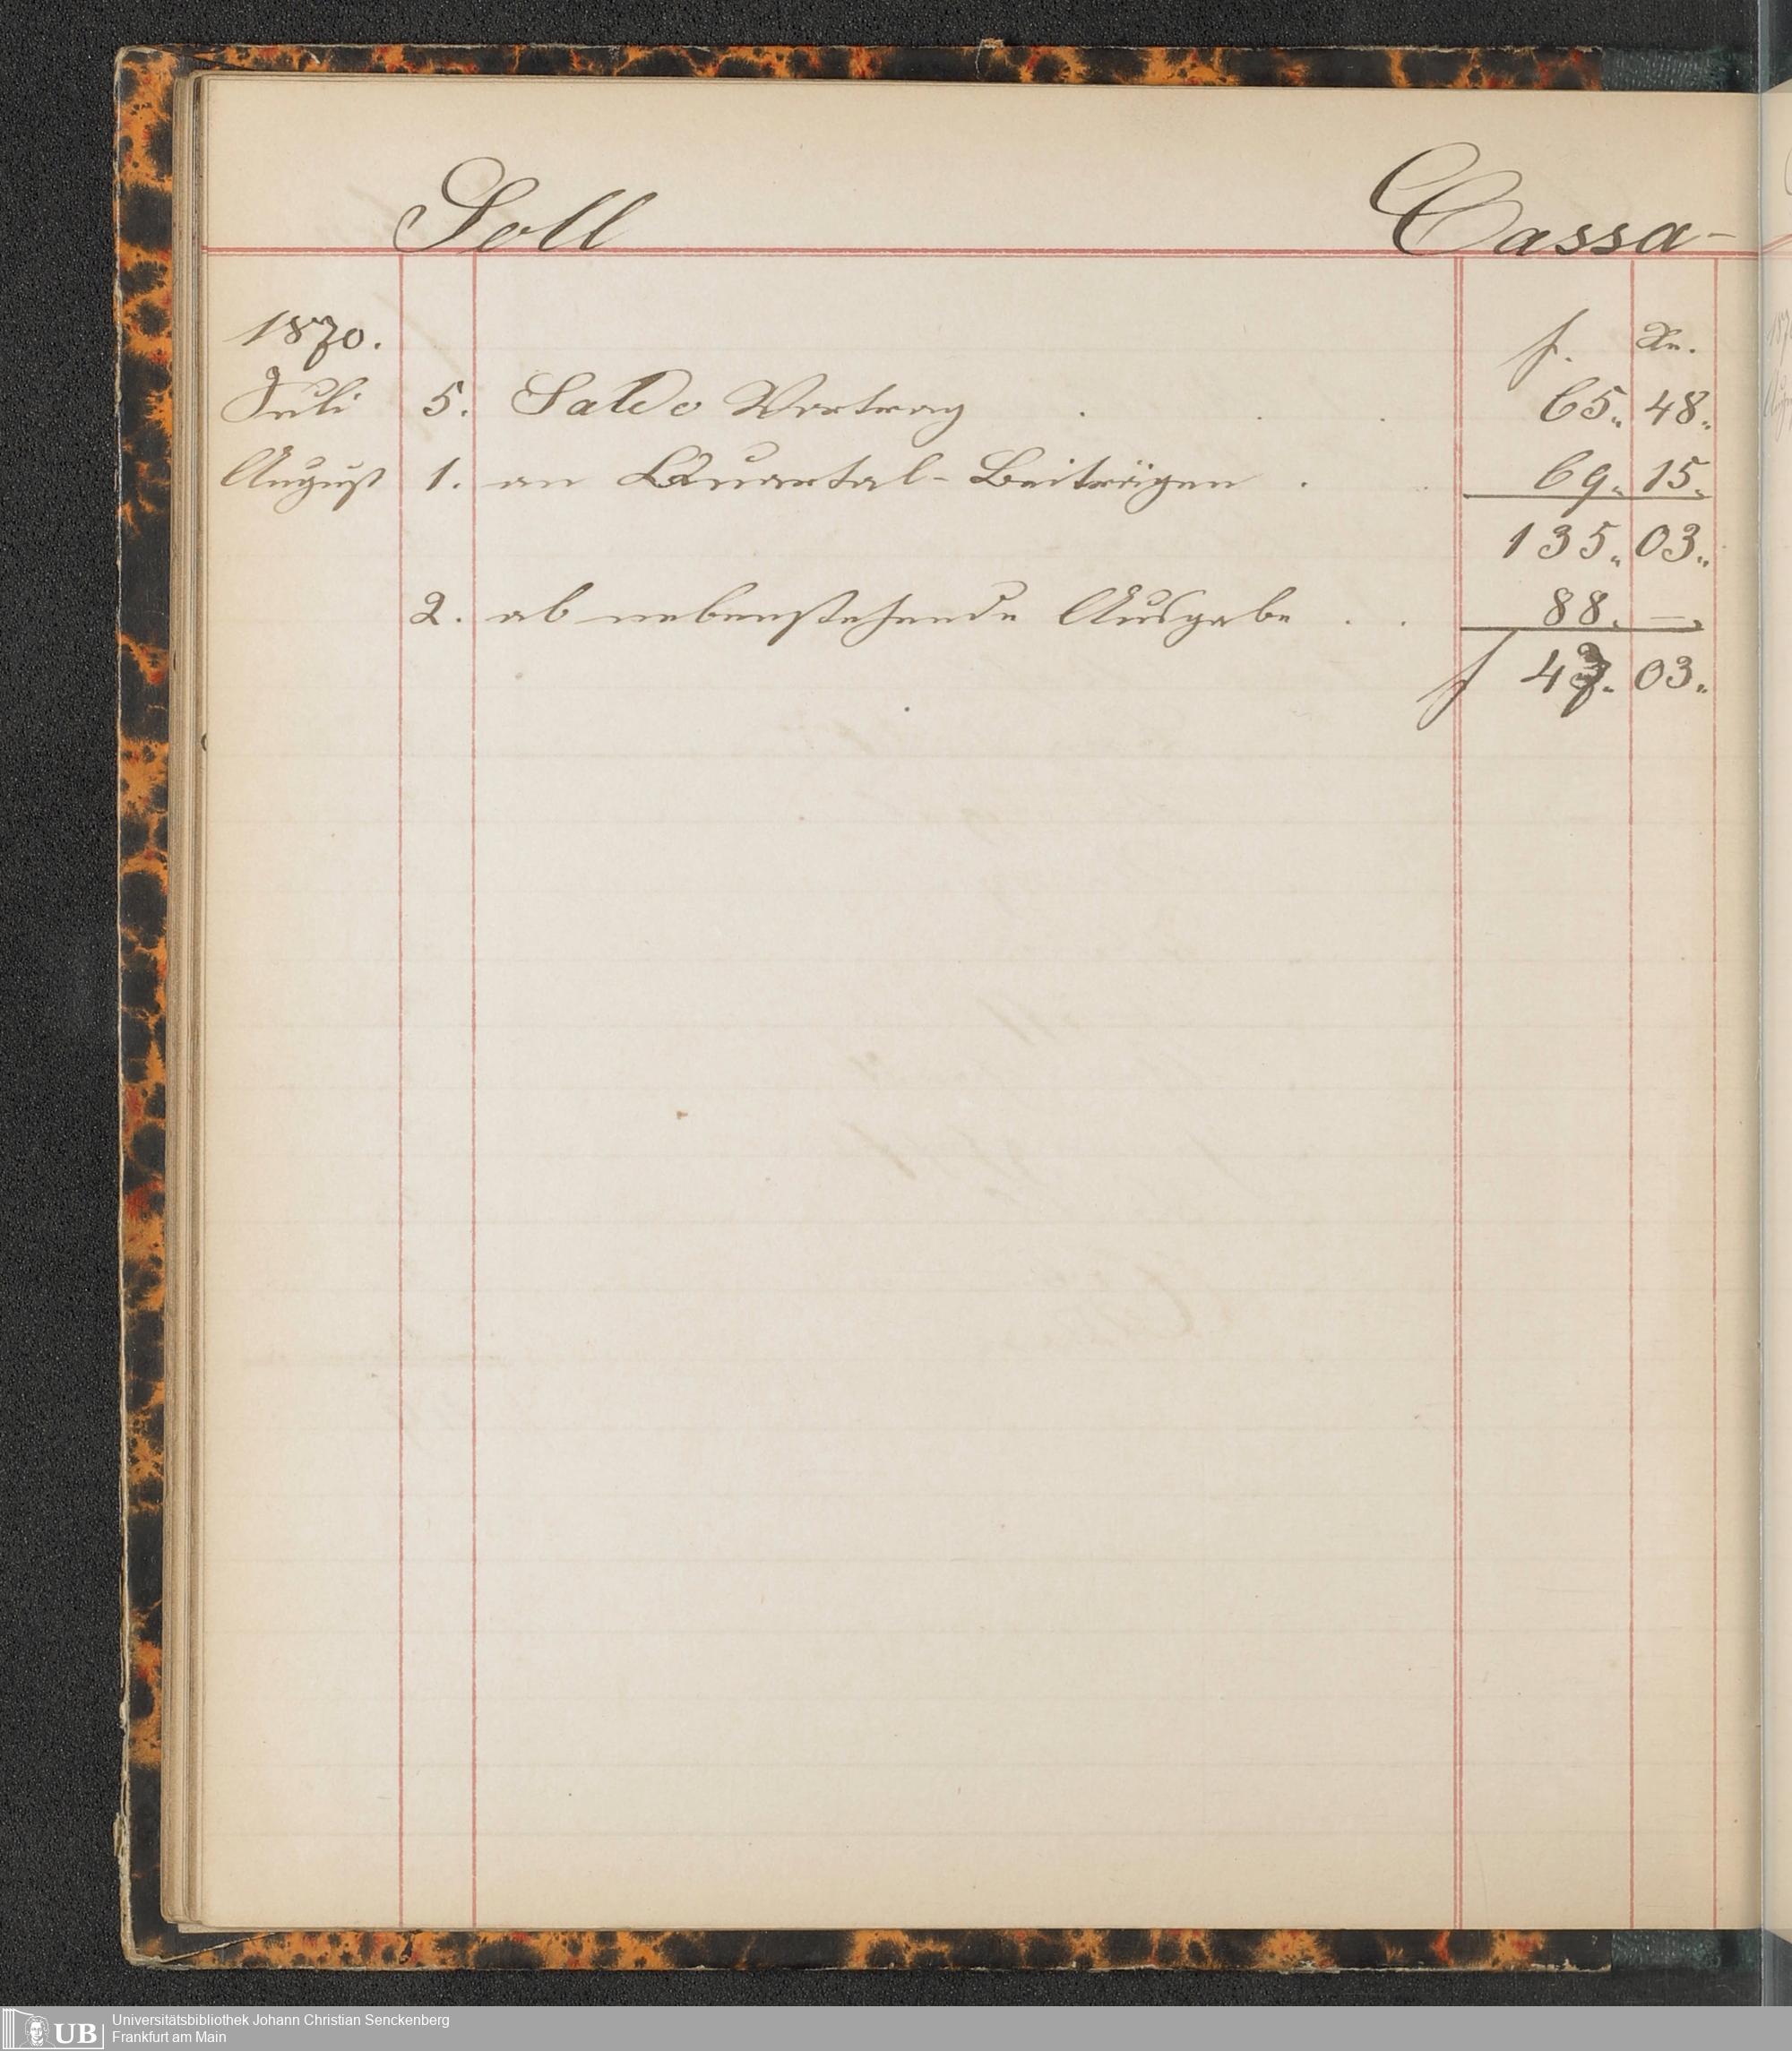 Soll Cassa-
1870. f. Xr.
Juli 5. Saldo Vortrag . . . 65.. 48..
August 1. an Quartal-Beiträgen . . 69.. 15..
135.. 03..
2. ab nebenstehende Ausgabe . . 88. —
f 47.. 03..
Universitätsbibliothek Johann Christian Senckenberg
Frankfurt am Main
UB